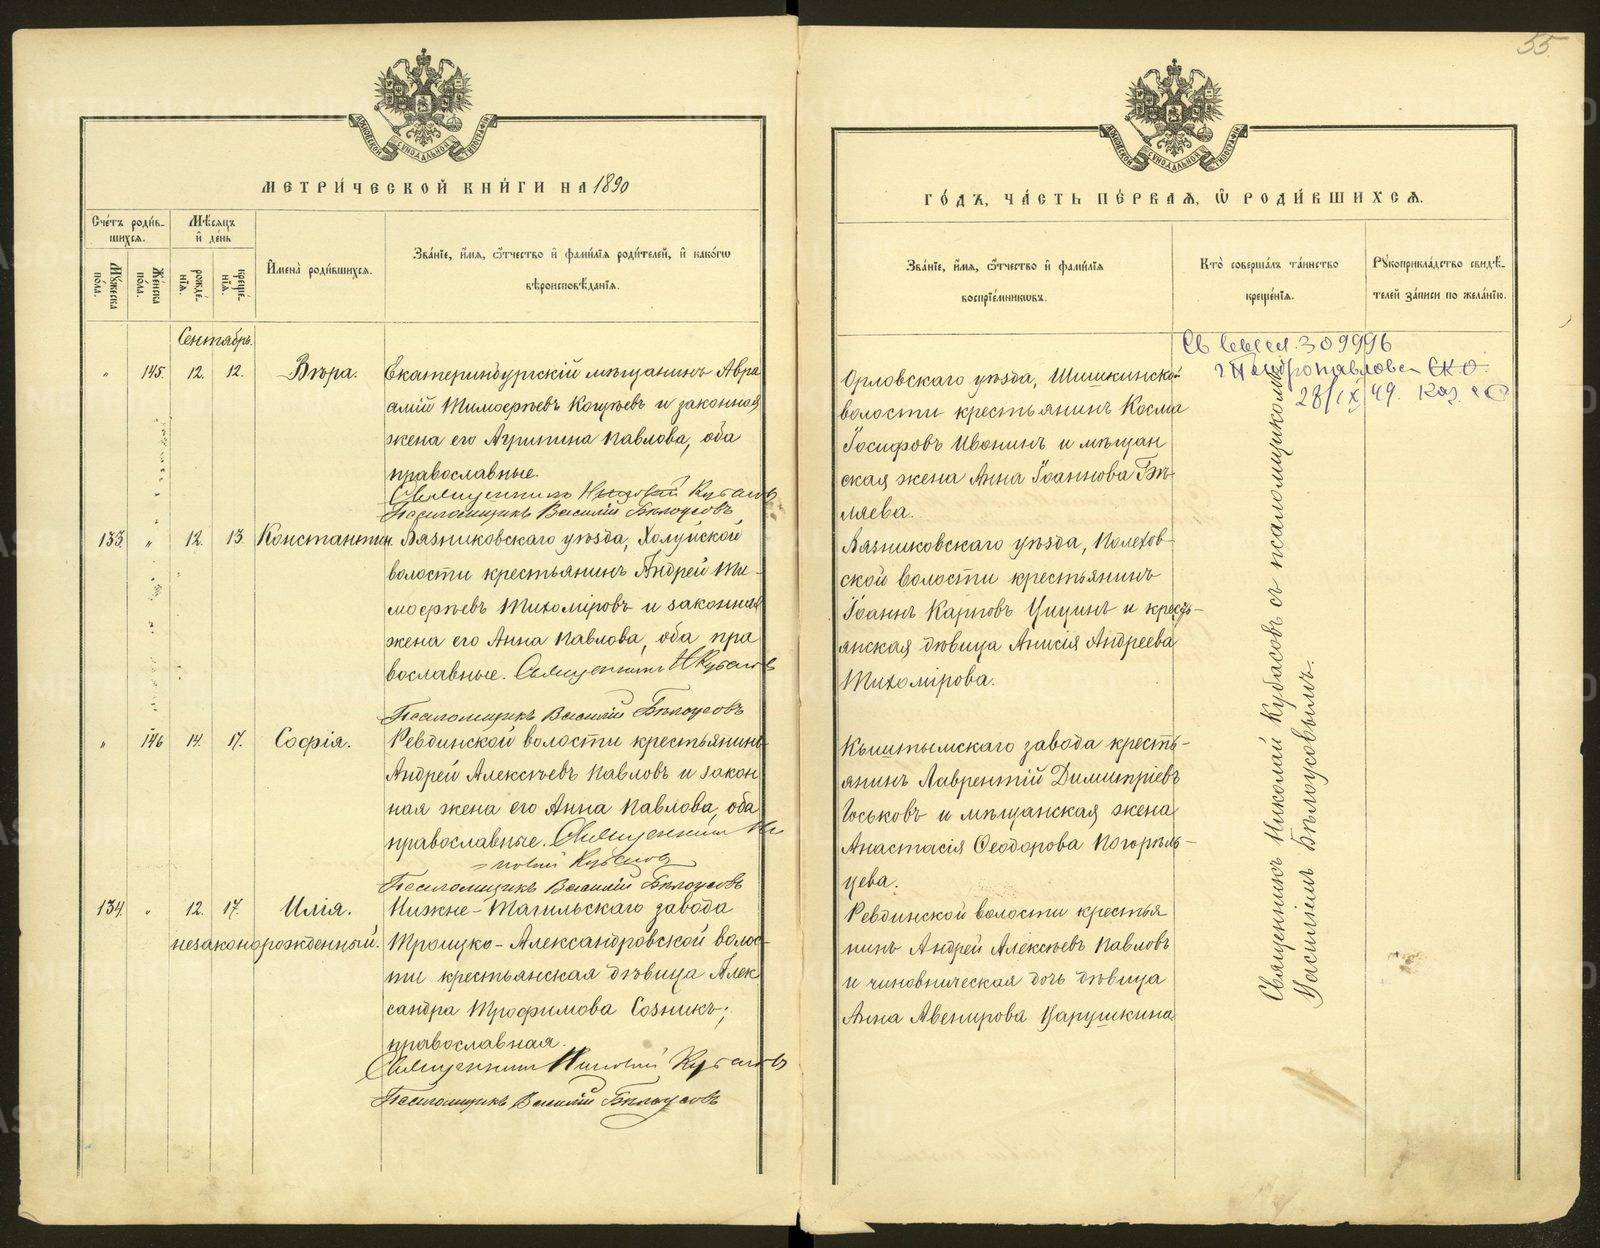 55.
МОСКОВСКОЙ СѴНОДАЛЬНОЙ ТИПОГРАФІИ
МЕТРИ́ЧЕСКОЙ КНИ́ГИ НА 1890
Сче́тъ роди́в-
шихся.
Мѣ́сяцъ
и҆ де́нь
Мꙋ́жеска по́ла.
Же́нска по́ла.
рожде́нїѧ.
креще́нїѧ.
И҆мена̀ роди́вшихся.
Зва́нїе, и҆́мѧ, ѻ҆́тчество и҆ фами́лїѧ роди́телей, и҆ како́гѡ
вѣроисповѣ́данїѧ.
Сентябрь.
" 145. 12. 12. Вѣра.
Екатеринбургскій мѣщанинъ Авра
амій Тимоѳѣевъ и законная
жена его Агрипина Павлова, оба
православные.
Священникъ Николай Кубасовъ
Псаломщикъ Василій Бѣлоусовъ
133. " 12. 13. Константин.
Вязниковскаго уѣзда, Холуйской
волости крестьянинъ Андрей Ти-
моѳѣевъ Тихоміровъ и законная
жена его Анна Павлова, оба пра
вославные. Священникъ Н Кубасов
Псаломщикъ Василій Бѣлоусовъ
" 146 14. 17. Софія.
Ревдинской волости крестьянинъ
Андрей Алексѣевъ Павловъ и закон
ная жена его Анна Павлова, оба
православные. Священникъ Ни
=колай Кубасов
Псаломщикъ Василій Бѣлоусовъ
134. " 12. 17. Илія.
незаконорожденный.
Нижне-Тагильскаго завода
Троицко-Александровской волос-
ти крестьянская дѣвица Алек
сандра Трофимова Созникъ;
православная.
Священникъ Николай Кубасовъ
Псаломщикъ Василій Бѣлоусовъ
МОСКОВСКОЙ СѴНОДАЛЬНОЙ ТИПОГРАФІИ
ГО́ДЪ, ЧА́СТЬ ПЕ́РВАѦ, Ѡ҆ РОДИ́ВШИХСѦ.
Зва́нїе, и҆́мѧ, ѻ҆́тчество и҆ фами́лїѧ
воспрїе́мникѡвъ.
Кто̀ соверша́лъ та́инство
креще́нїѧ.
Рꙋкоприкла́дство свидѣ́-
телей за́писи по жела́нїю.
309996
28/IX 49.
Орловскаго уѣзда, Шишкинской
волости крестьянинъ Косма
Іосифовъ Ивонинъ и мѣщан
ская жена Анна Іоаннова Бѣ-
ляева.
Вязниковскаго уѣзда, Палехов-
ской волости крестьянинъ
Іоаннъ Карповъ Цицинъ и кресть-
янская дѣвица Анисія Андреева
Тихомірова.
Кыштымскаго завода кресть-
янинъ Лаврентій Димитріевъ
Юськовъ и мѣщанская жена
Анастасія Ѳеодорова Погорѣль-
цева.
Ревдинской волости крестья
нинъ Андрей Алексѣевъ Павловъ
и чиновническая дочь дѣвица
Анна Авенирова Царушкина.
Священникъ Николай Кубасовъ съ псаломщикомъ
Василіемъ Бѣлоусовымъ.
METRIKI.GASO-URAL.RU